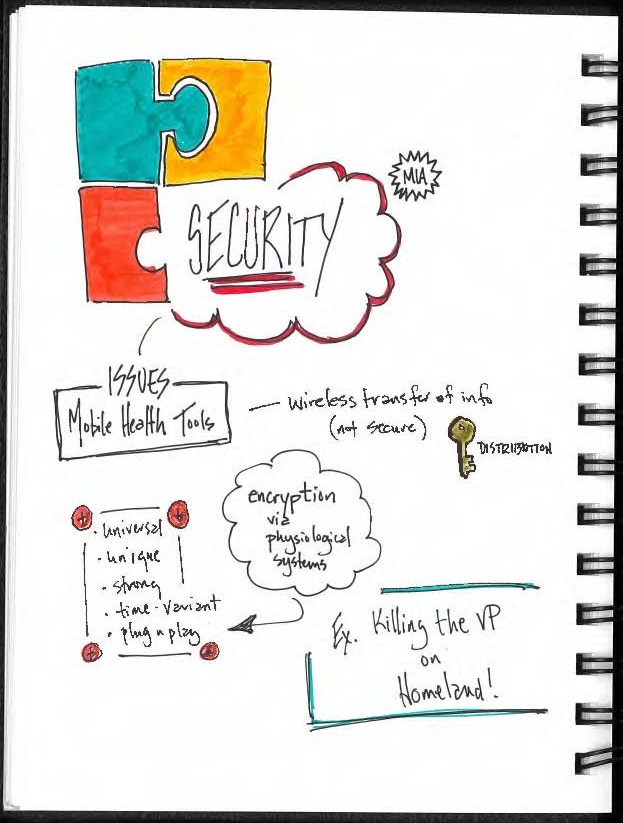 MIA
SECURITY
ISSUES
Mobile Health Tools
wireless transfer of info
(not secure)
DISTRIBUTION
encryption
via
physiological
systems
· universal
· unique
· strong
· time-variant
· plug n play
Ex. Killing the VP
on
Homeland!